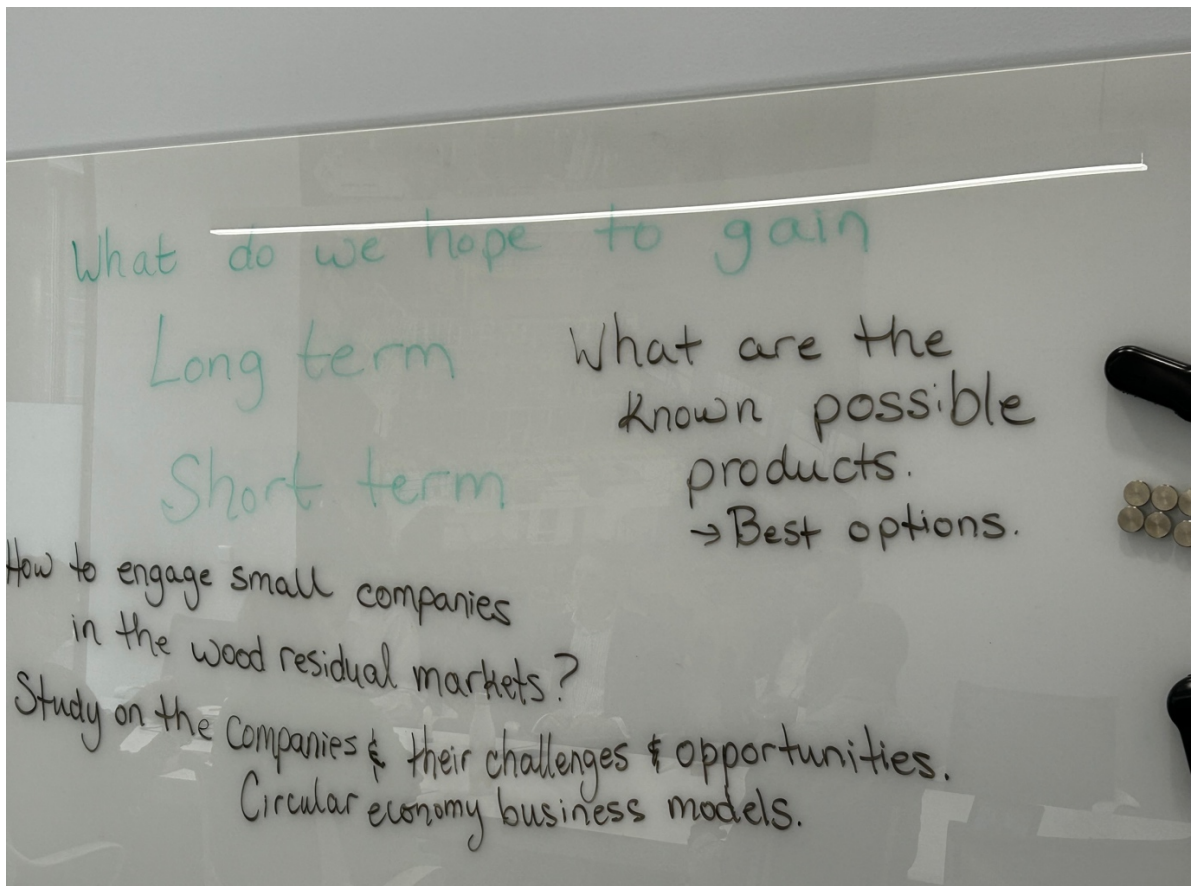 What do we hope to gain
Long term
Short term
What are the
known possible
products.
→ Best options.
How to engage small companies
in the wood residual markets?
Study on the companies & their challenges & opportunities.
Circular economy business models.